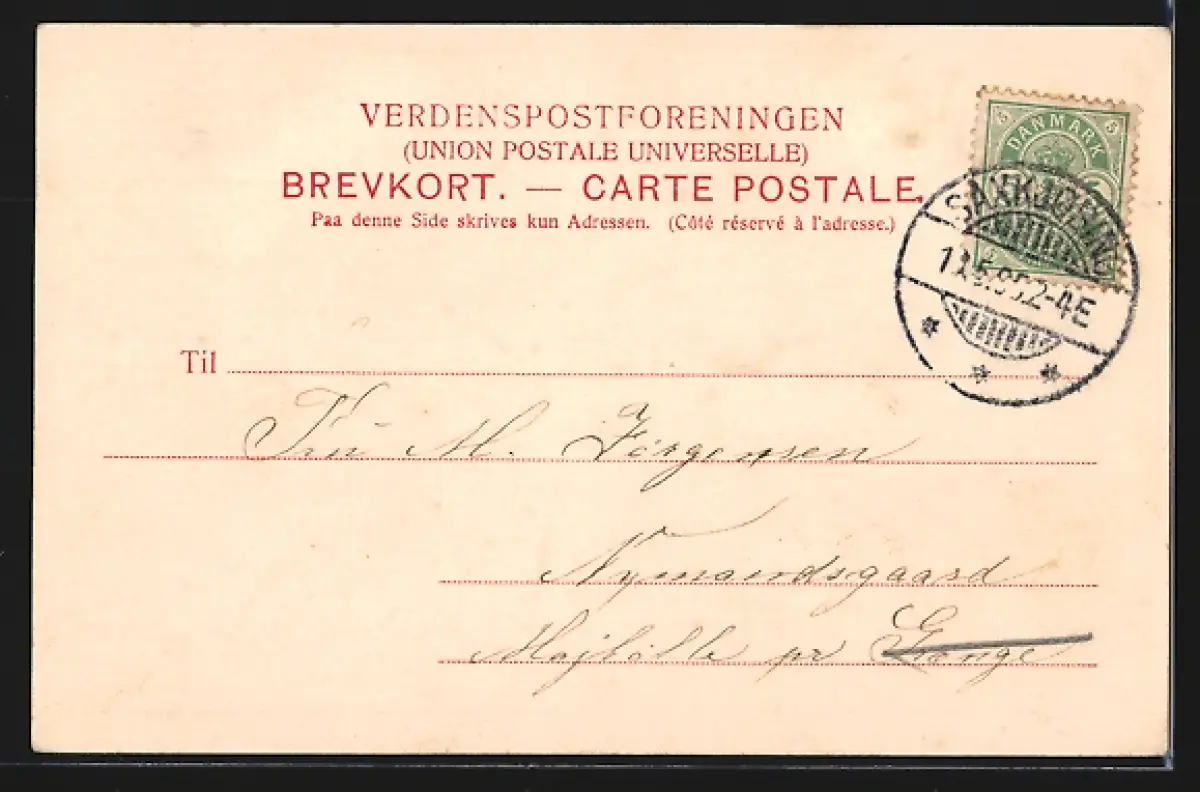 VERDENSPOSTFORENINGEN
(UNION POSTALE UNIVERSELLE)
BREVKORT. — CARTE POSTALE.
Paa denne Side skrives kun Adressen. (Côté réservé à l'adresse.)
5 5
DANMARK
2-4E
Til
Fru M. Jörgensen
Nymandsgaard
Majbölle pr